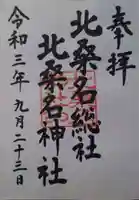 奉拝
北桑名総社
北桑名神社
令和三年九月二十三日